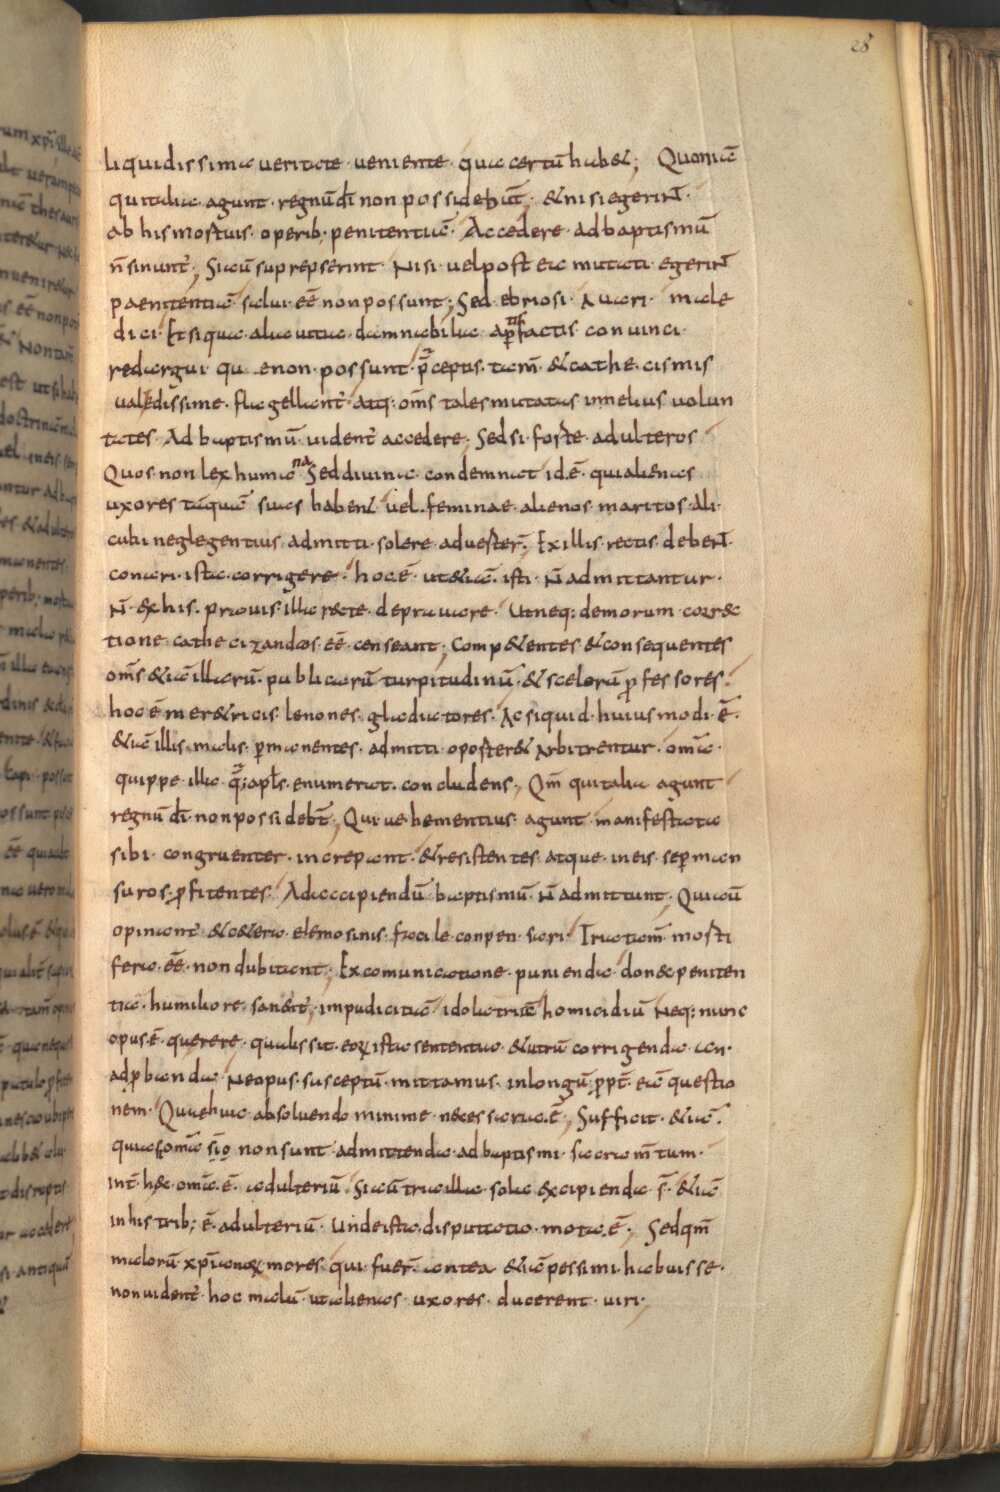 28
liquidissima ueritate· ueniente· quae certū habet; Quoniā
qui talia· agunt· regnū dī non possidebūt; & nisi egerint·
ab his mortuis· operib; penitentiā· Accedere· ad baptismū
n̄ sinunt᷑; Si cū suprepserint· Nisi· uel post ea mutati· egerint
paenitentiā· salui· eē non possunt; Sed· ebriosi· Auari· male
dici· Et si qua· alia uitia· damnabilia· apert factis· conuinci·
redargui· quae non· possunt· p̄ceptis· tam̄· & cathe·cismis
ualedissime· flagellant᷑· atq: om̄s tales mutatas in melius uolun
tates· Ad baptismū· uident᷑ accedere; Sed si· forte· adulteros
Quos non lex humana Sed diuina· condemnat id·ē· qui alienas
uxores tāquā suas habent uel· feminae· alienos· maritos· ali·
cubi neglegentius· admitti· solere· aduerter̄; Ex illis· rectis· debent·
conari· ista· corrigere· hoc·ē· ut & iā· isti· N̄ admittantur·
N̄· ex his· prauis· illa recte· deprauare· Ut neq: demorum· correc
tione· cathecizandos· eē· censeant; Comp&entes & consequentes
om̄s & iā illarū· publicarū turpitudinū· & scelorū p̱fessores·
hoc ē mer&ricis· lenones· gladiatores· Ac si quid· huius modi·ē·
& iā illis· malis· p̱manentes· admitti· oporter& Arbitrentur· omīa·
quippe· illa· q̄; apl̄s· enumerat· concludens; Qm̄ qui talia agunt
regnū dī· non possidebt̄; Qui uehementius· agunt· manifestata
sibi· congruenter· increpant· & resistentes· atque· in eis· sep̱man
suros· p̱fitentes· Ad accipiendū baptismū· N̄ admittunt· Qui cū
opinant᷑· & c&era· elemosinis· facile· conpensari· Tria tam̄· morti
fera· eē· non dubitant; Excomunicatione· puniendo· donec peniten
tia· humiliore· sanent᷑; impudicitiā idolatriā homicidiū Neq: nunc
opus·ē· querere· qualis sit· eoꝝ ista sententia· & utrū corrigendo· an·
adp̱bando· Ne opus· susceptū· mittamus· in longū· p̱pt̄· eā questio
nem· Quae huic absoluendo minime· necessaria·ē; Sufficit· & iā·
quia si omīa sio non sunt· admittenda· ad baptismi· sacram̄tum·
int᷑· hec omīa·ē· adulteriū· Si cū tria illa· sola· excipienda· s̄· & iā
in his trib; ē· adulteriū· Unde ista disputatio· mota·ē· Sed qm̄
malorū xp̄ianoꝝ mores· qui fuer̄· antea & iā pessimi· habuisse·
non uident᷑· hoc malū· ut alienas· uxores· ducerent· uiri·